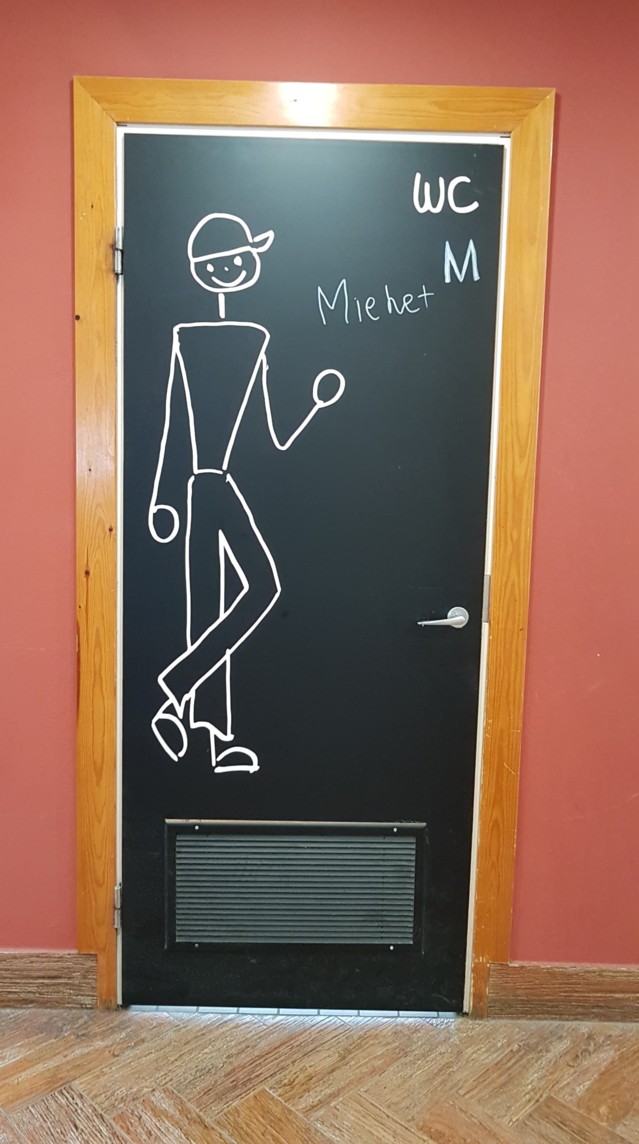 WC
M
Miehet